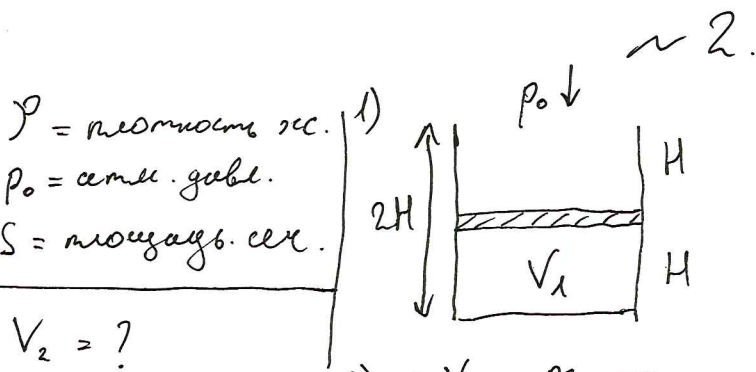 ~ 2.
ρ = плотность ж.
p₀ = атм. давл.
S = площадь. сеч.
V₂ = ?
1)
p₀ ↓
2H
H
V₁
H